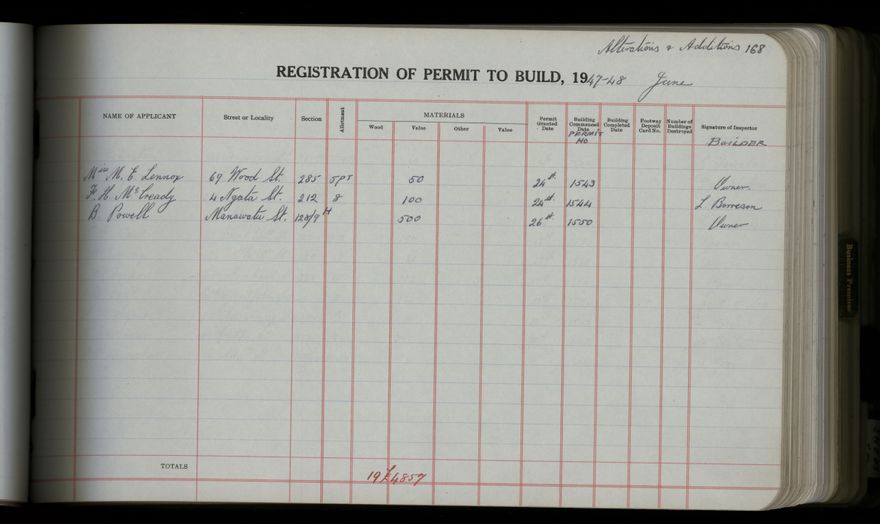 Alterations & Additions 168
REGISTRATION OF PERMIT TO BUILD, 1947-48 June
NAME OF APPLICANT Street or Locality Section Allotment MATERIALS Wood Value Other Value Permit Granted Date Building Commenced Date PERMIT NO Building Completed Date Footway Deposit Card No. Number of Buildings Destroyed Signature of Inspector BUILDER
Miss M. E. Lennox 69 Wood St. 285 5PT 50 24th 1543 Owner
F. H. McCready 4 Ngata St. 212 8 100 24th 1544 L Borreson
B Powell Manawatu St. H 500 26th 1550 Owner
TOTALS 19 £4857
Business Premises